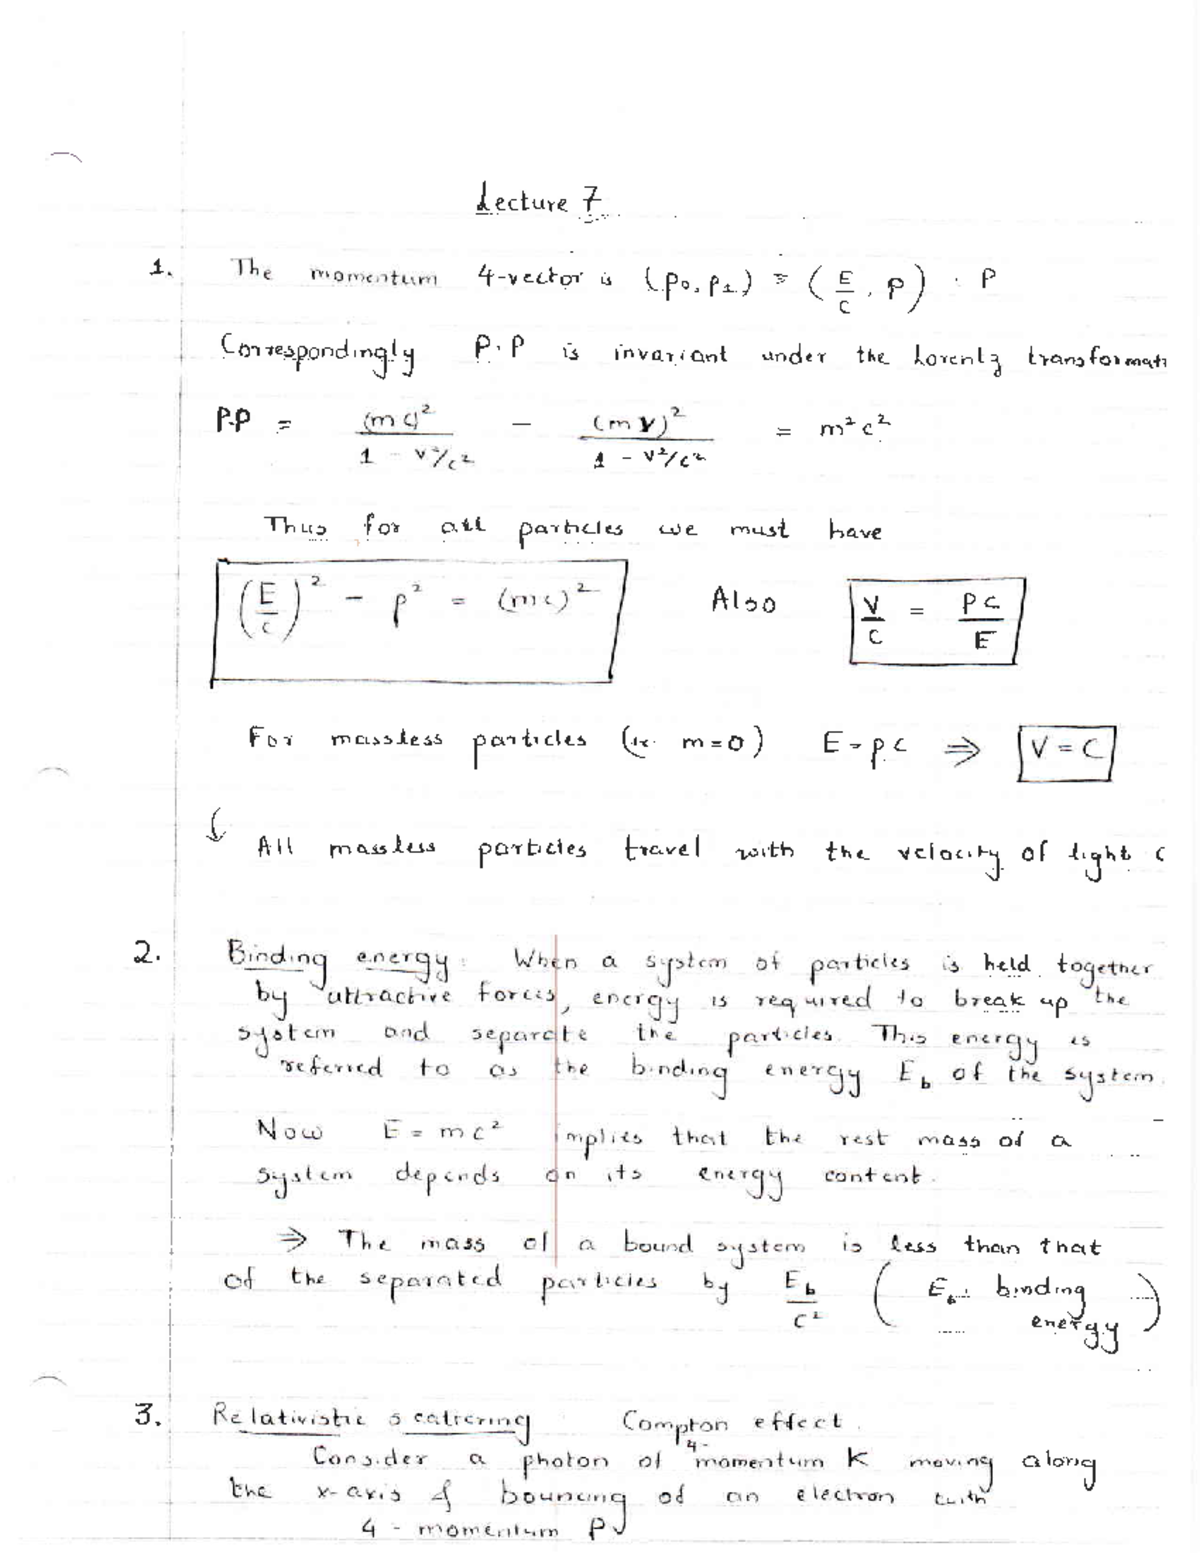 Lecture 7
1. The momentum 4-vector is (p0, p1) = (E/c, p) · P
Correspondingly P.P is invariant under the Lorentz transformati
P.P = (mc)²/(1 - v²/c²) - (mv)²/(1 - v²/c²) = m²c²
Thus for all particles we must have
(E/c)² - p² = (mc)² Also V/C = PC/E
For massless particles (ie. m=0) E = pc ⇒ V = C
All massless particles travel with the velocity of light c
2. Binding energy: When a system of particles is held together
by attractive forces, energy is required to break up the
system and separate the particles. This energy is
referred to as the binding energy E_b of the system.
Now E = mc² implies that the rest mass of a
system depends on its energy content.
⇒ The mass of a bound system is less than that
of the separated particles by E_b/c² (E_b: binding
energy)
3. Relativistic scattering Compton effect.
Consider a photon of 4-momentum K moving along
the x-axis & bouncing of an electron with
4-momentum P